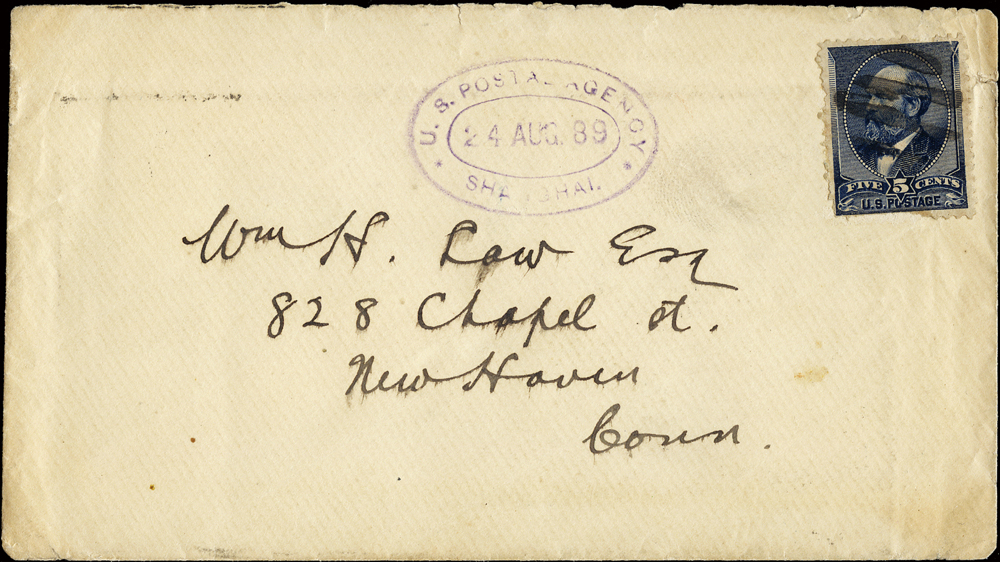 U. S. POSTAL AGENCY
24 AUG. 89
SHANGHAI.
FIVE 5 CENTS
U.S. POSTAGE
Wm H. Law Esq
828 Chapel St.
New Haven
Conn.